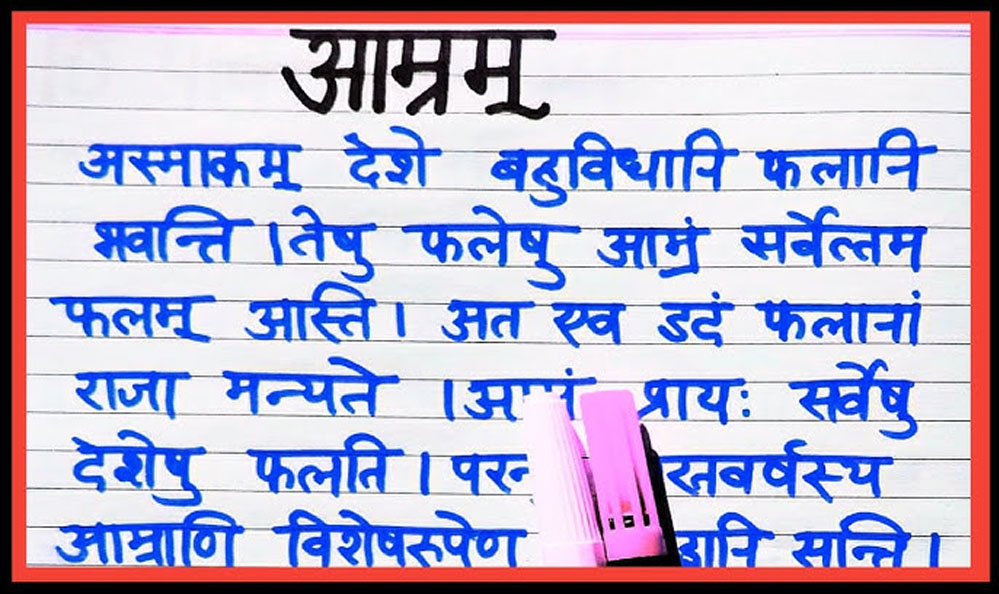 आम्रम्
अस्माकम् देशे बहुविधानि फलानि
भवन्ति ।तेषु फलेषु आम्रं सर्वेत्तम
फलम् आस्ति। अत एव इदं फलानां
राजा मन्यते । प्रायः सर्वेषु
देशेषु फलति ।
आम्राणि विशेषरुपेण सन्ति।